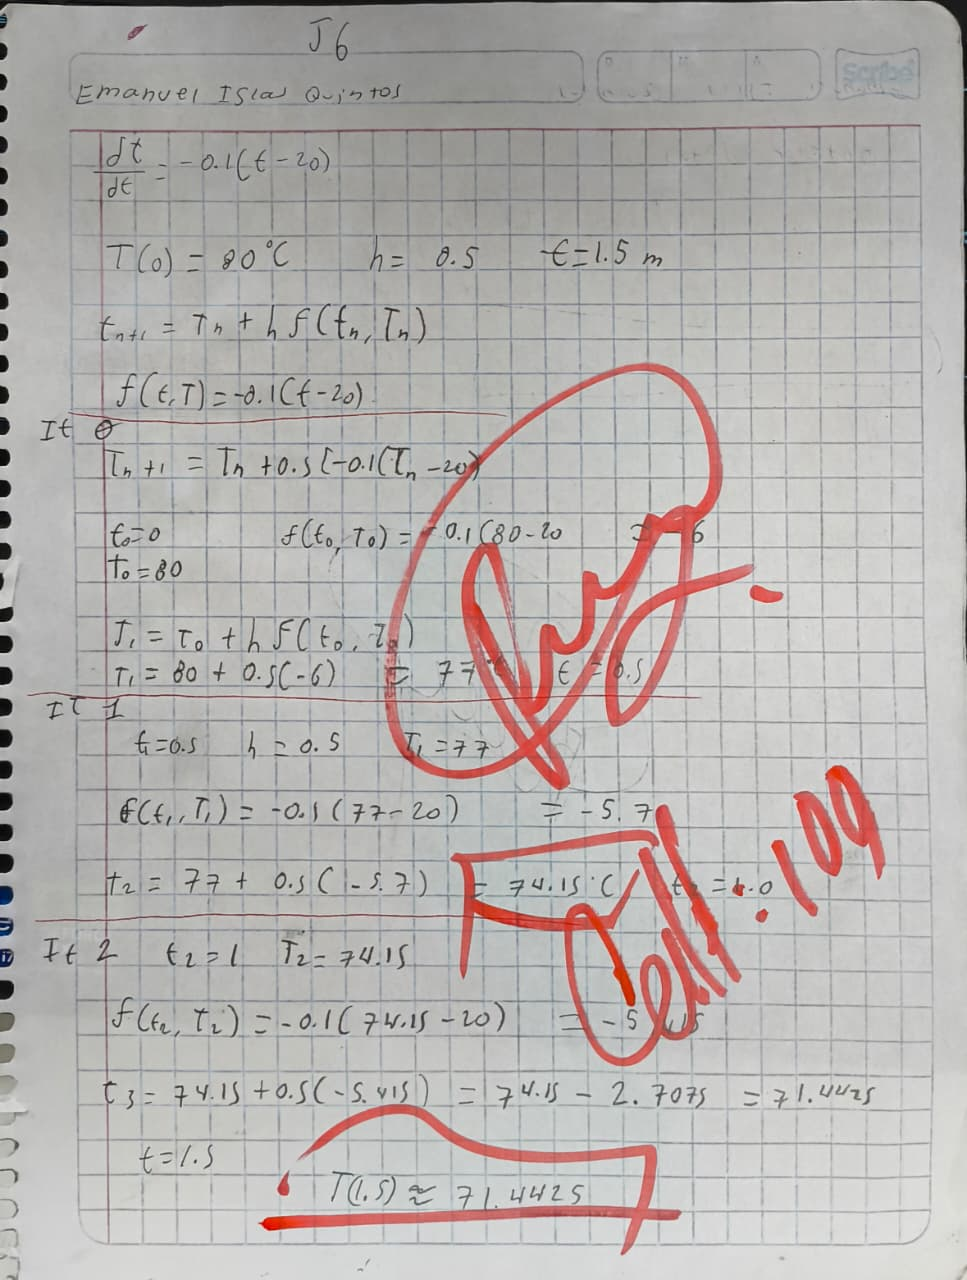 J6
Emanuel Islas Quintos
Scribe
dt/dt = -0.1(t-20)
T(0) = 80°C h= 0.5 t=1.5 m
tn+1 = Tn + h f(tn, Tn)
f(t,T)=-0.1(t-20)
It 0
Tn+1 = Tn +0.5[-0.1(Tn-20)
t0=0 f(t0, T0) = -0.1(80-20 = -6
T0=80
T1 = T0 + h f(t0, T0)
T1 = 80 + 0.5(-6) = 77°C t = 0.5
IT 1
t1=0.5 h = 0.5 T1=77
f(t1, T1) = -0.1(77-20) = -5.7
t2 = 77 + 0.5(-5.7) = 74.15°C t2 = 1.0
It 2 t2=1 T2=74.15
f(t2, T2) = -0.1(74.15-20) = -5.415
t3= 74.15 +0.5(-5.415) = 74.15 - 2.7075 = 71.4425
t=1.5
T(1.5) ≈ 71.4425